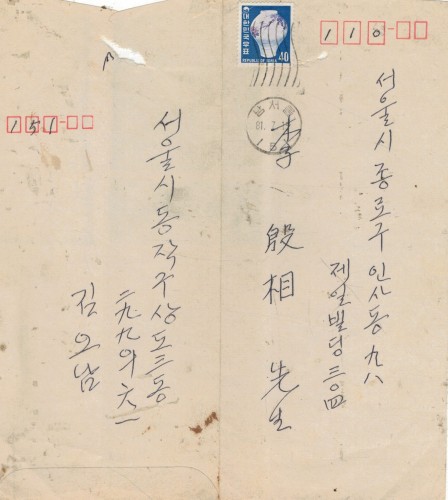 110-
서울시 종로구 인사동 九八
제일빌딩 三〇四
李 殷相 先生
대한민국우표
40
REPUBLIC OF KOREA
151-
서울시 동작구 상도三동
二九九의 六一
김오남